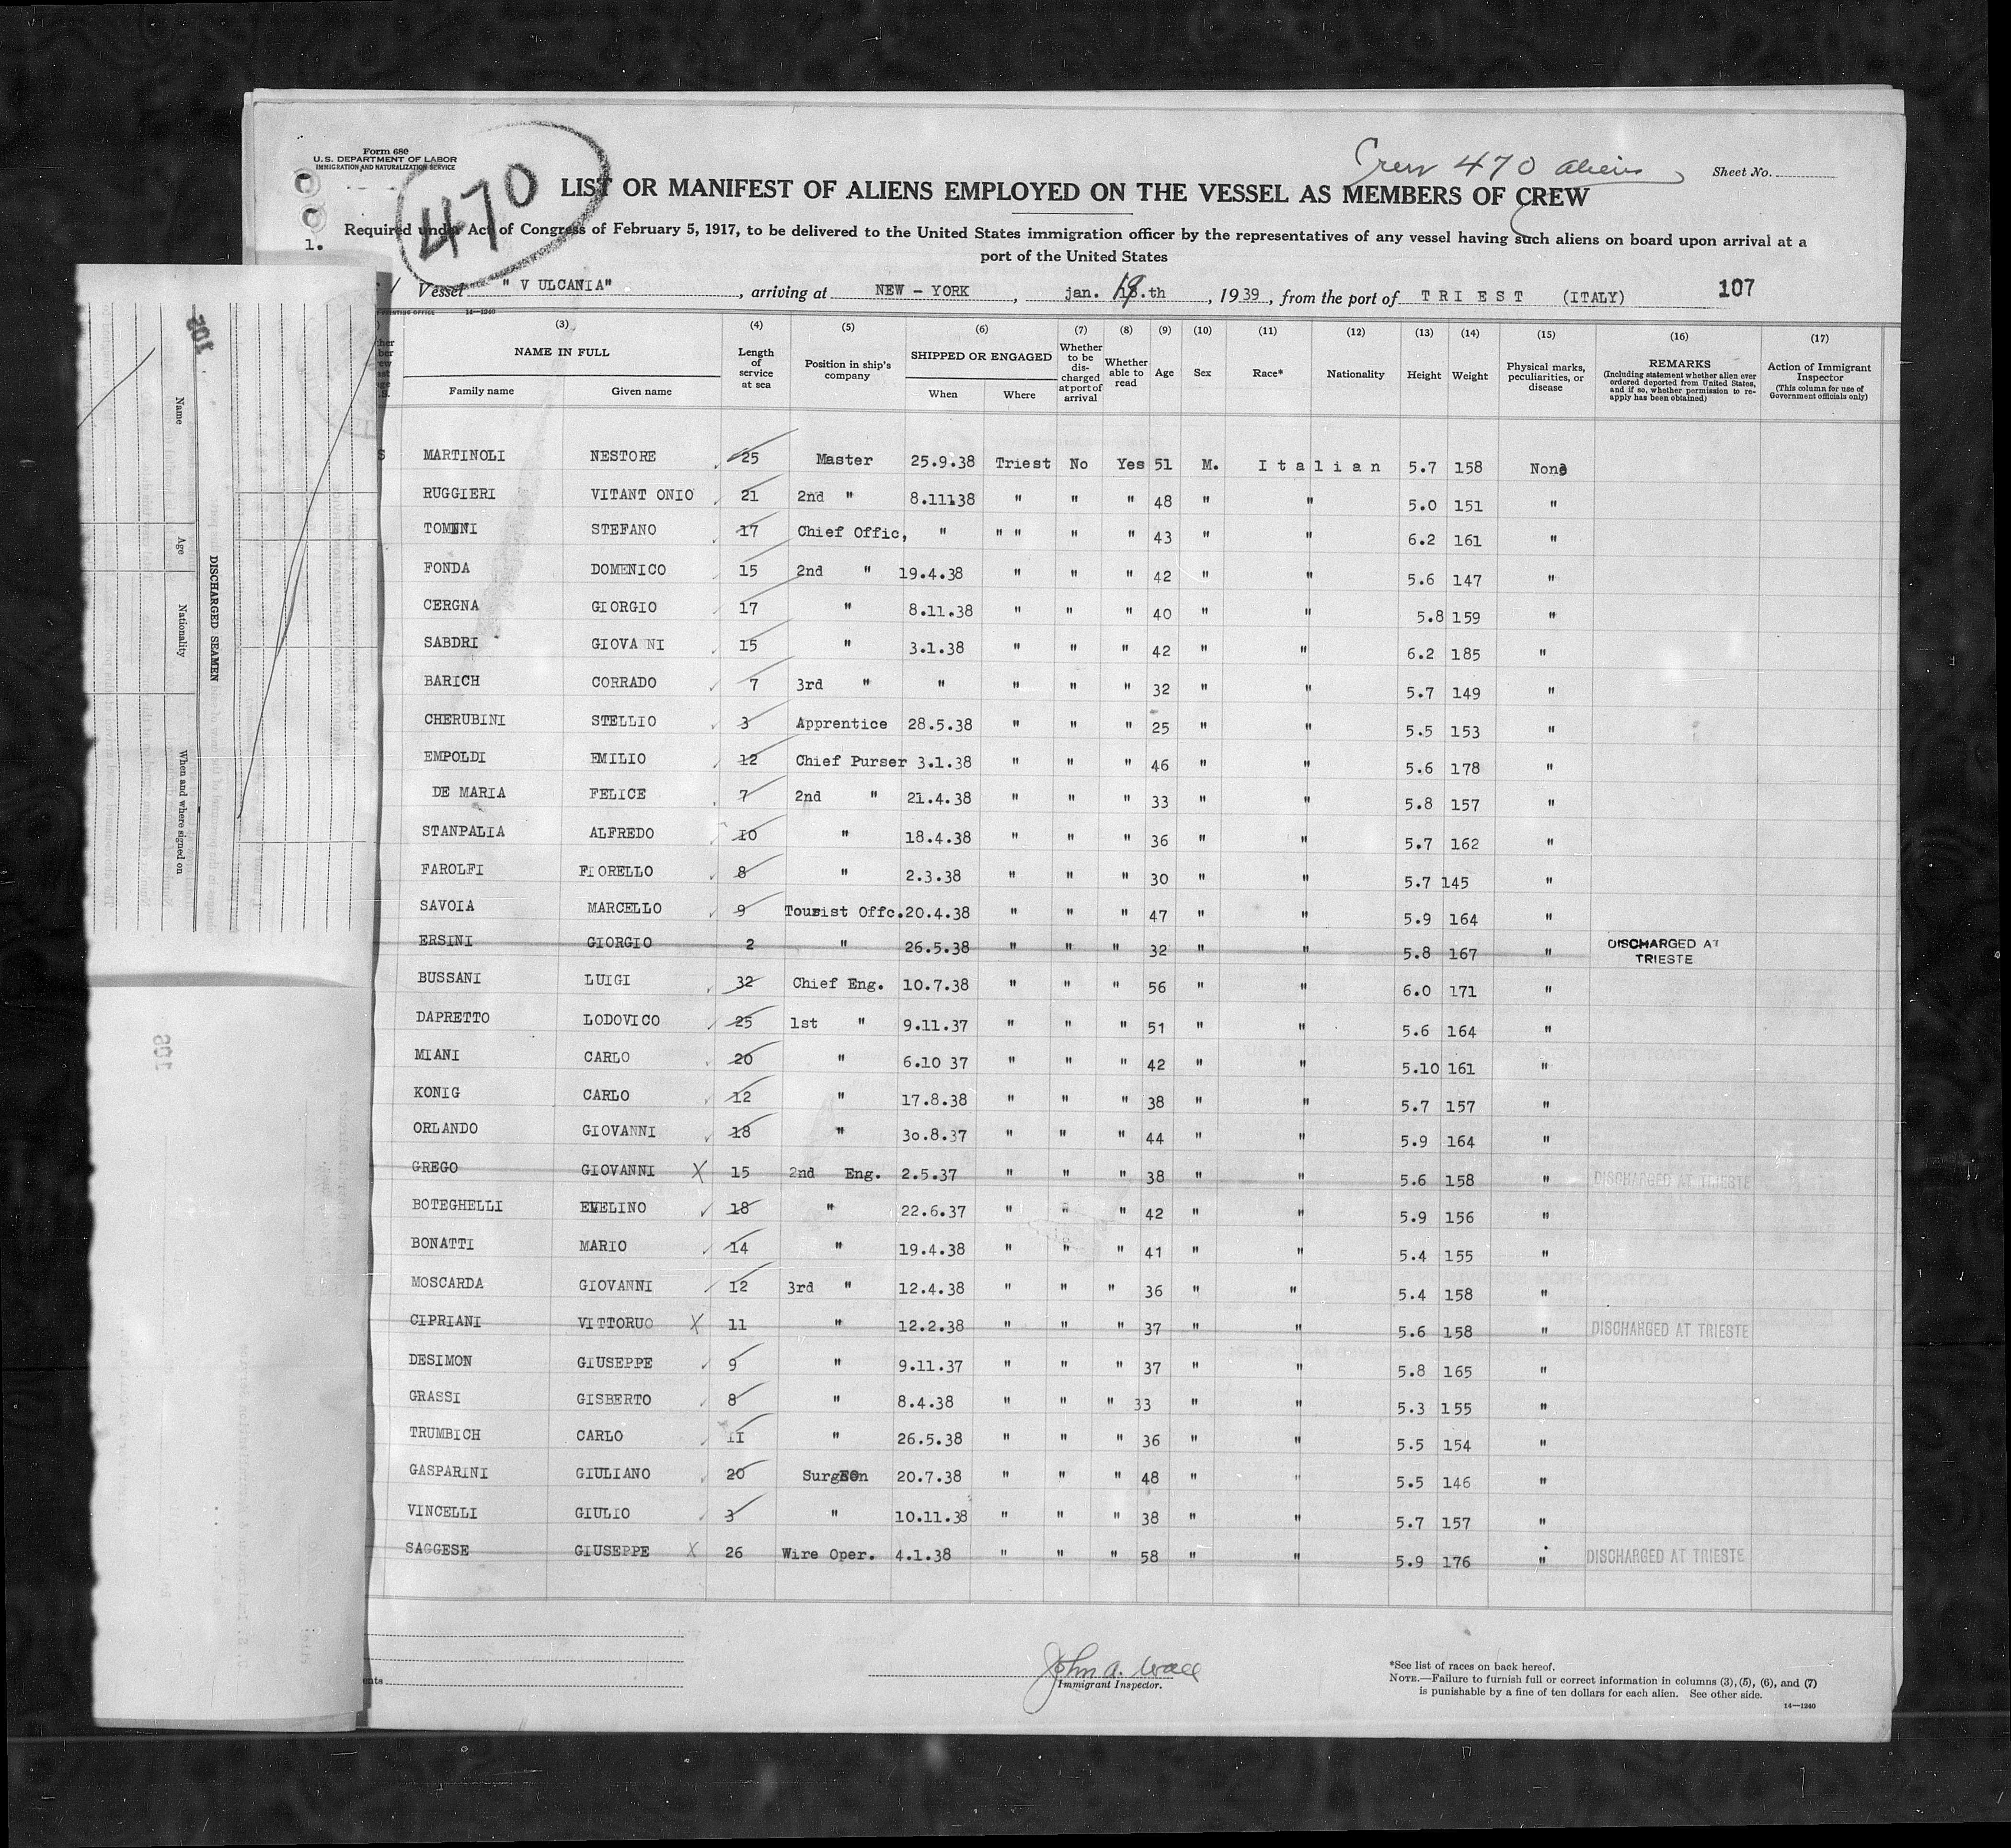 Form 680
U.S. DEPARTMENT OF LABOR
IMMIGRATION AND NATURALIZATION SERVICE
470
Crew 470 aliens
Sheet No.
LIST OR MANIFEST OF ALIENS EMPLOYED ON THE VESSEL AS MEMBERS OF CREW
1.
Required under Act of Congress of February 5, 1917, to be delivered to the United States immigration officer by the representatives of any vessel having such aliens on board upon arrival at a
port of the United States
Vessel " V ULCANIA" , arriving at NEW - YORK , jan. .th , 1939 , from the port of T R I E S T (ITALY) 107
(3) (4) (5) (6) (7) (8) (9) (10) (11) (12) (13) (14) (15) (16) (17)
NAME IN FULL
Family name Given name
Length of service at sea
Position in ship's company
SHIPPED OR ENGAGED
When Where
Whether to be discharged at port of arrival
Whether able to read
Age Sex Race* Nationality Height Weight
Physical marks, peculiarities, or disease
REMARKS
(Including statement whether alien ever ordered deported from United States, and if so, whether permission to re-apply has been obtained)
Action of Immigrant Inspector
(This column for use of Government officials only)
MARTINOLI NESTORE 25 Master 25.9.38 Triest No Yes 51 M. I t a l i a n 5.7 158 None
RUGGIERI VITANT ONIO 21 2nd " 8.11.38 " " " 48 " " 5.0 151 "
TOMINI STEFANO 17 Chief Offic, " " " " " 43 " " 6.2 161 "
FONDA DOMENICO 15 2nd " 19.4.38 " " " 42 " " 5.6 147 "
CERGNA GIORGIO 17 " 8.11.38 " " " 40 " " 5.8 159 "
SABDRI GIOVA NI 15 " 3.1.38 " " " 42 " " 6.2 185 "
BARICH CORRADO 7 3rd " " " " " 32 " " 5.7 149 "
CHERUBINI STELLIO 3 Apprentice 28.5.38 " " " 25 " " 5.5 153 "
EMPOLDI EMILIO 12 Chief Purser 3.1.38 " " " 46 " " 5.6 178 "
DE MARIA FELICE 7 2nd " 21.4.38 " " " 33 " " 5.8 157 "
STANPALIA ALFREDO 10 " 18.4.38 " " " 36 " " 5.7 162 "
FAROLFI FIORELLO 8 " 2.3.38 " " " 30 " " 5.7 145 "
SAVOIA MARCELLO 9 Tourist Offc. 20.4.38 " " " 47 " " 5.9 164 "
ERSINI GIORGIO 2 " 26.5.38 " " " 32 " " 5.8 167 " DISCHARGED AT TRIESTE
BUSSANI LUIGI 32 Chief Eng. 10.7.38 " " " 56 " " 6.0 171 "
DAPRETTO LODOVICO 25 1st " 9.11.37 " " " 51 " " 5.6 164 "
MIANI CARLO 20 " 6.10 37 " " " 42 " " 5.10 161 "
KONIG CARLO 12 " 17.8.38 " " " 38 " " 5.7 157 "
ORLANDO GIOVANNI 18 " 30.8.37 " " " 44 " " 5.9 164 "
GREGO GIOVANNI X 15 2nd Eng. 2.5.37 " " " 38 " " 5.6 158 " DISCHARGED AT TRIESTE
BOTEGHELLI EVELINO 18 " 22.6.37 " " " 42 " " 5.9 156 "
BONATTI MARIO 14 " 19.4.38 " " " 41 " " 5.4 155 "
MOSCARDA GIOVANNI 12 3rd " 12.4.38 " " " 36 " " 5.4 158 "
CIPRIANI VITTORUO X 11 " 12.2.38 " " " 37 " " 5.6 158 " DISCHARGED AT TRIESTE
DESIMON GIUSEPPE 9 " 9.11.37 " " " 37 " " 5.8 165 "
GRASSI GISBERTO 8 " 8.4.38 " " " 33 " " 5.3 155 "
TRUMBICH CARLO 11 " 26.5.38 " " " 36 " " 5.5 154 "
GASPARINI GIULIANO 20 Surgeon 20.7.38 " " " 48 " " 5.5 146 "
VINCELLI GIULIO 3 " 10.11.38 " " " 38 " " 5.7 157 "
SAGGESE GIUSEPPE X 26 Wire Oper. 4.1.38 " " " 58 " " 5.9 176 " DISCHARGED AT TRIESTE
John A. Wall
Immigrant Inspector.
*See list of races on back hereof.
NOTE.—Failure to furnish full or correct information in columns (3), (5), (6), and (7)
is punishable by a fine of ten dollars for each alien. See other side.
14—1240
DISCHARGED SEAMEN
Name Age Nationality When and where signed on